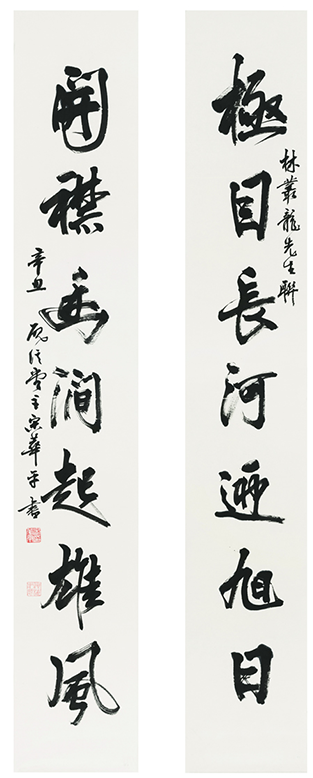 極目長河迎旭日
林叢龍先生聯
開襟幽澗起雄風
辛丑
堂主宋華平書